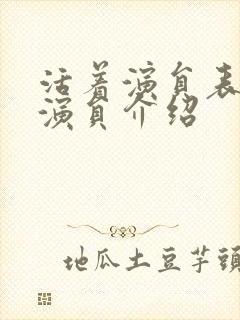 活着演员表
演员介绍
地瓜土豆芋头